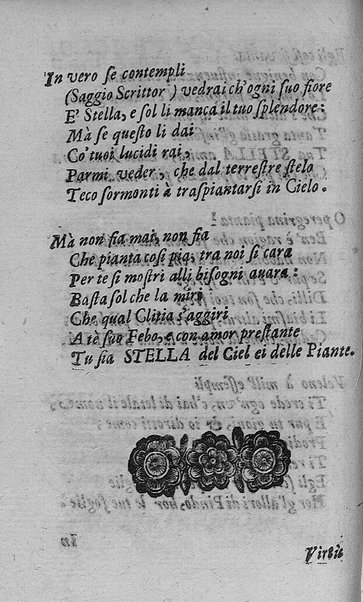 In vero se contempli
(Saggio Scrittor) vedrai ch'ogni suo fiore
E' Stella, e sol li manca il tuo splendore:
Mà se questo li dai
Co' tuoi lucidi rai,
Parmi veder, che dal terrestre stelo
Teco sormonti à traspiantarsi in Cielo.
Mà non fia mai, non fia
Che pianta così pia, tra noi si cara
Per te si mostri alli bisogni auara:
Basta sol che la miri
Che qual Clitia s'aggiri
A tè suo Febo, e con amor prestante
Tu sia STELLA del Ciel ei delle Piante.
Virtù